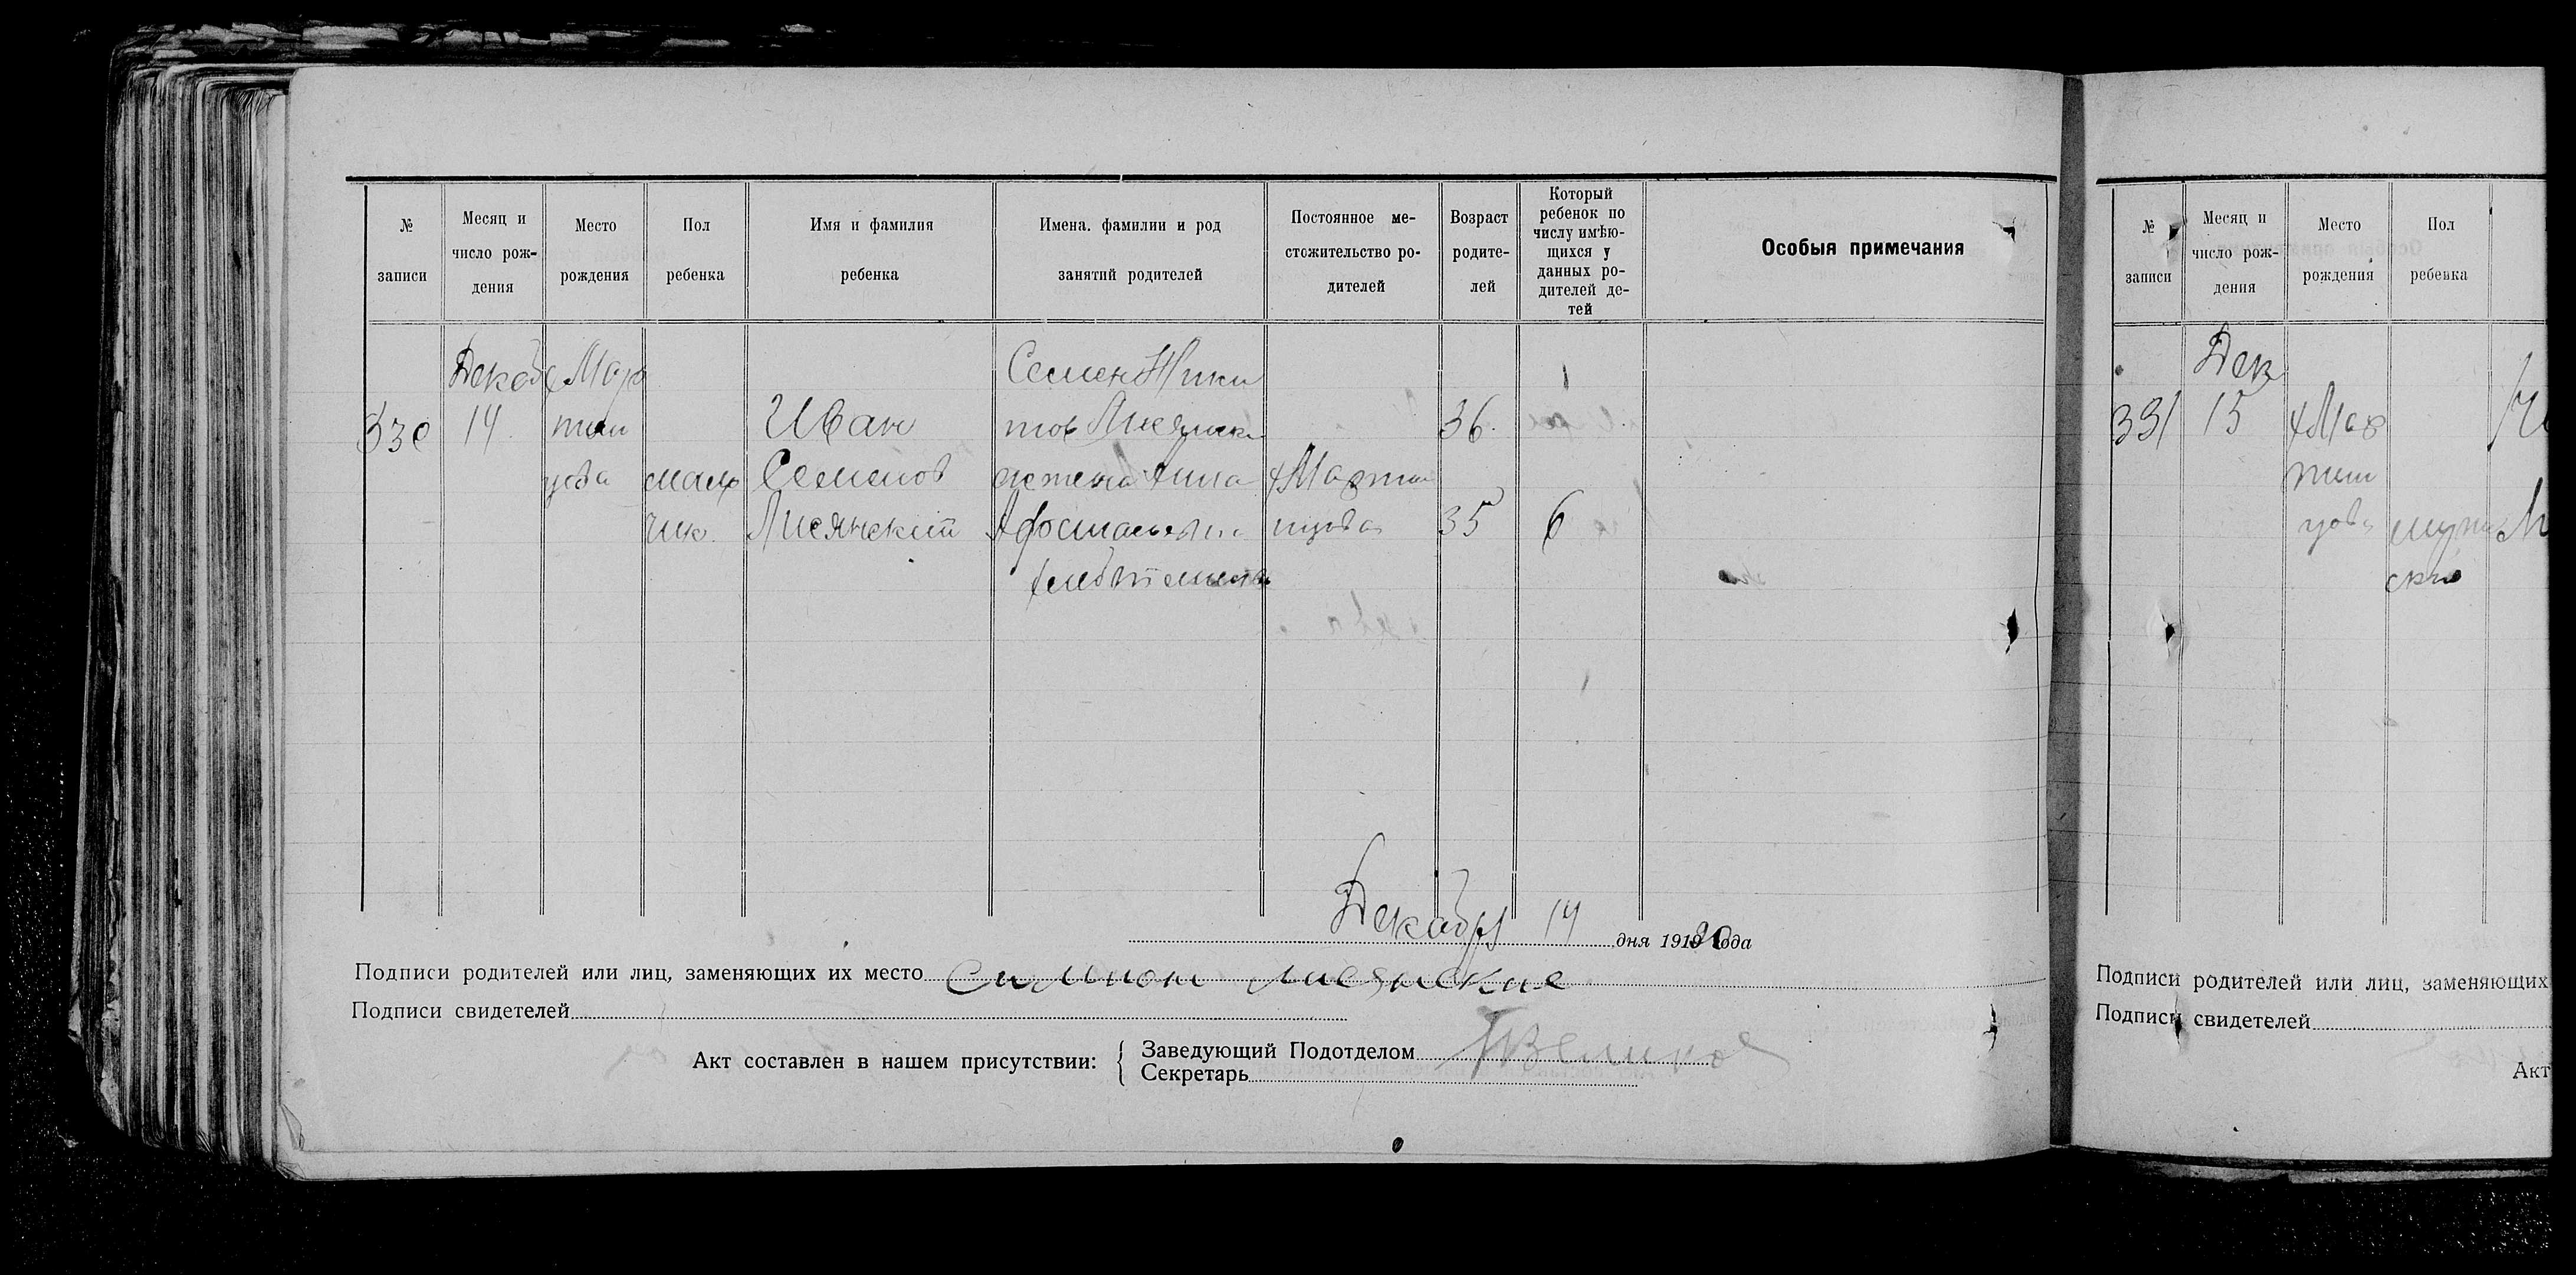 № записи
Месяц и число рож- дения
Место рождения
Пол ребенка
Имя и фамилия ребенка
Имена. фамилии и род занятий родителей
Постоянное ме- стожительство ро- дителей
Возраст родите- лей
Который ребенок по числу имѣю- щихся у данных ро- дителей де- тей
Особыя примечания
330
Декаб
14
х Мар
тын
цова
маль
чик
Иван
Семенов
Лисянский
Семен Ники
тов Лисянски
жена Анна
хлебопашец
х Мартын
цова
36
35
6
Декабря 14 дня 1920 года
Подписи родителей или лиц, заменяющих их место Симион Лисянские
Подписи свидетелей
Акт составлен в нашем присутствии:
Заведующий Подотделом
Секретарь
№ записи
Месяц и число рож- дения
Место рождения
Пол ребенка
331
Дек
15
х Мар
тын
цова
мужс
ской
Подписи родителей или лиц, заменяющих
Подписи свидетелей
Акт